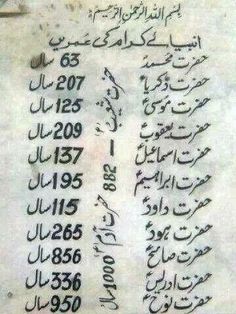 بِسْمِ اللّٰهِ الرَّحْمٰنِ الرَّحِيْمِ
انبیائے کرام کی عمریں
حضرت محمدؐ 63 سال
حضرت زکریاؑ 207 سال
حضرت موسیٰؑ 125 سال
حضرت یعقوبؑ 209 سال
حضرت اسماعیلؑ 137 سال
حضرت ابراہیمؑ 195 سال
حضرت داودؑ 115 سال
حضرت ہودؑ 265 سال
حضرت صالحؑ 856 سال
حضرت ادریسؑ 336 سال
حضرت نوحؑ 950 سال
حضرت شعیبؑ — 882
حضرت آدمؑ 1000 سال